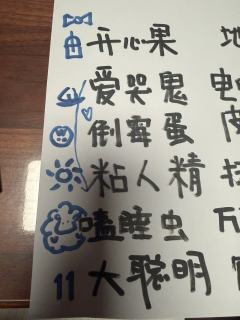 开心果 地
爱哭鬼
倒霉蛋 皮
粘人精
嗑睡虫 万
11 大聪明